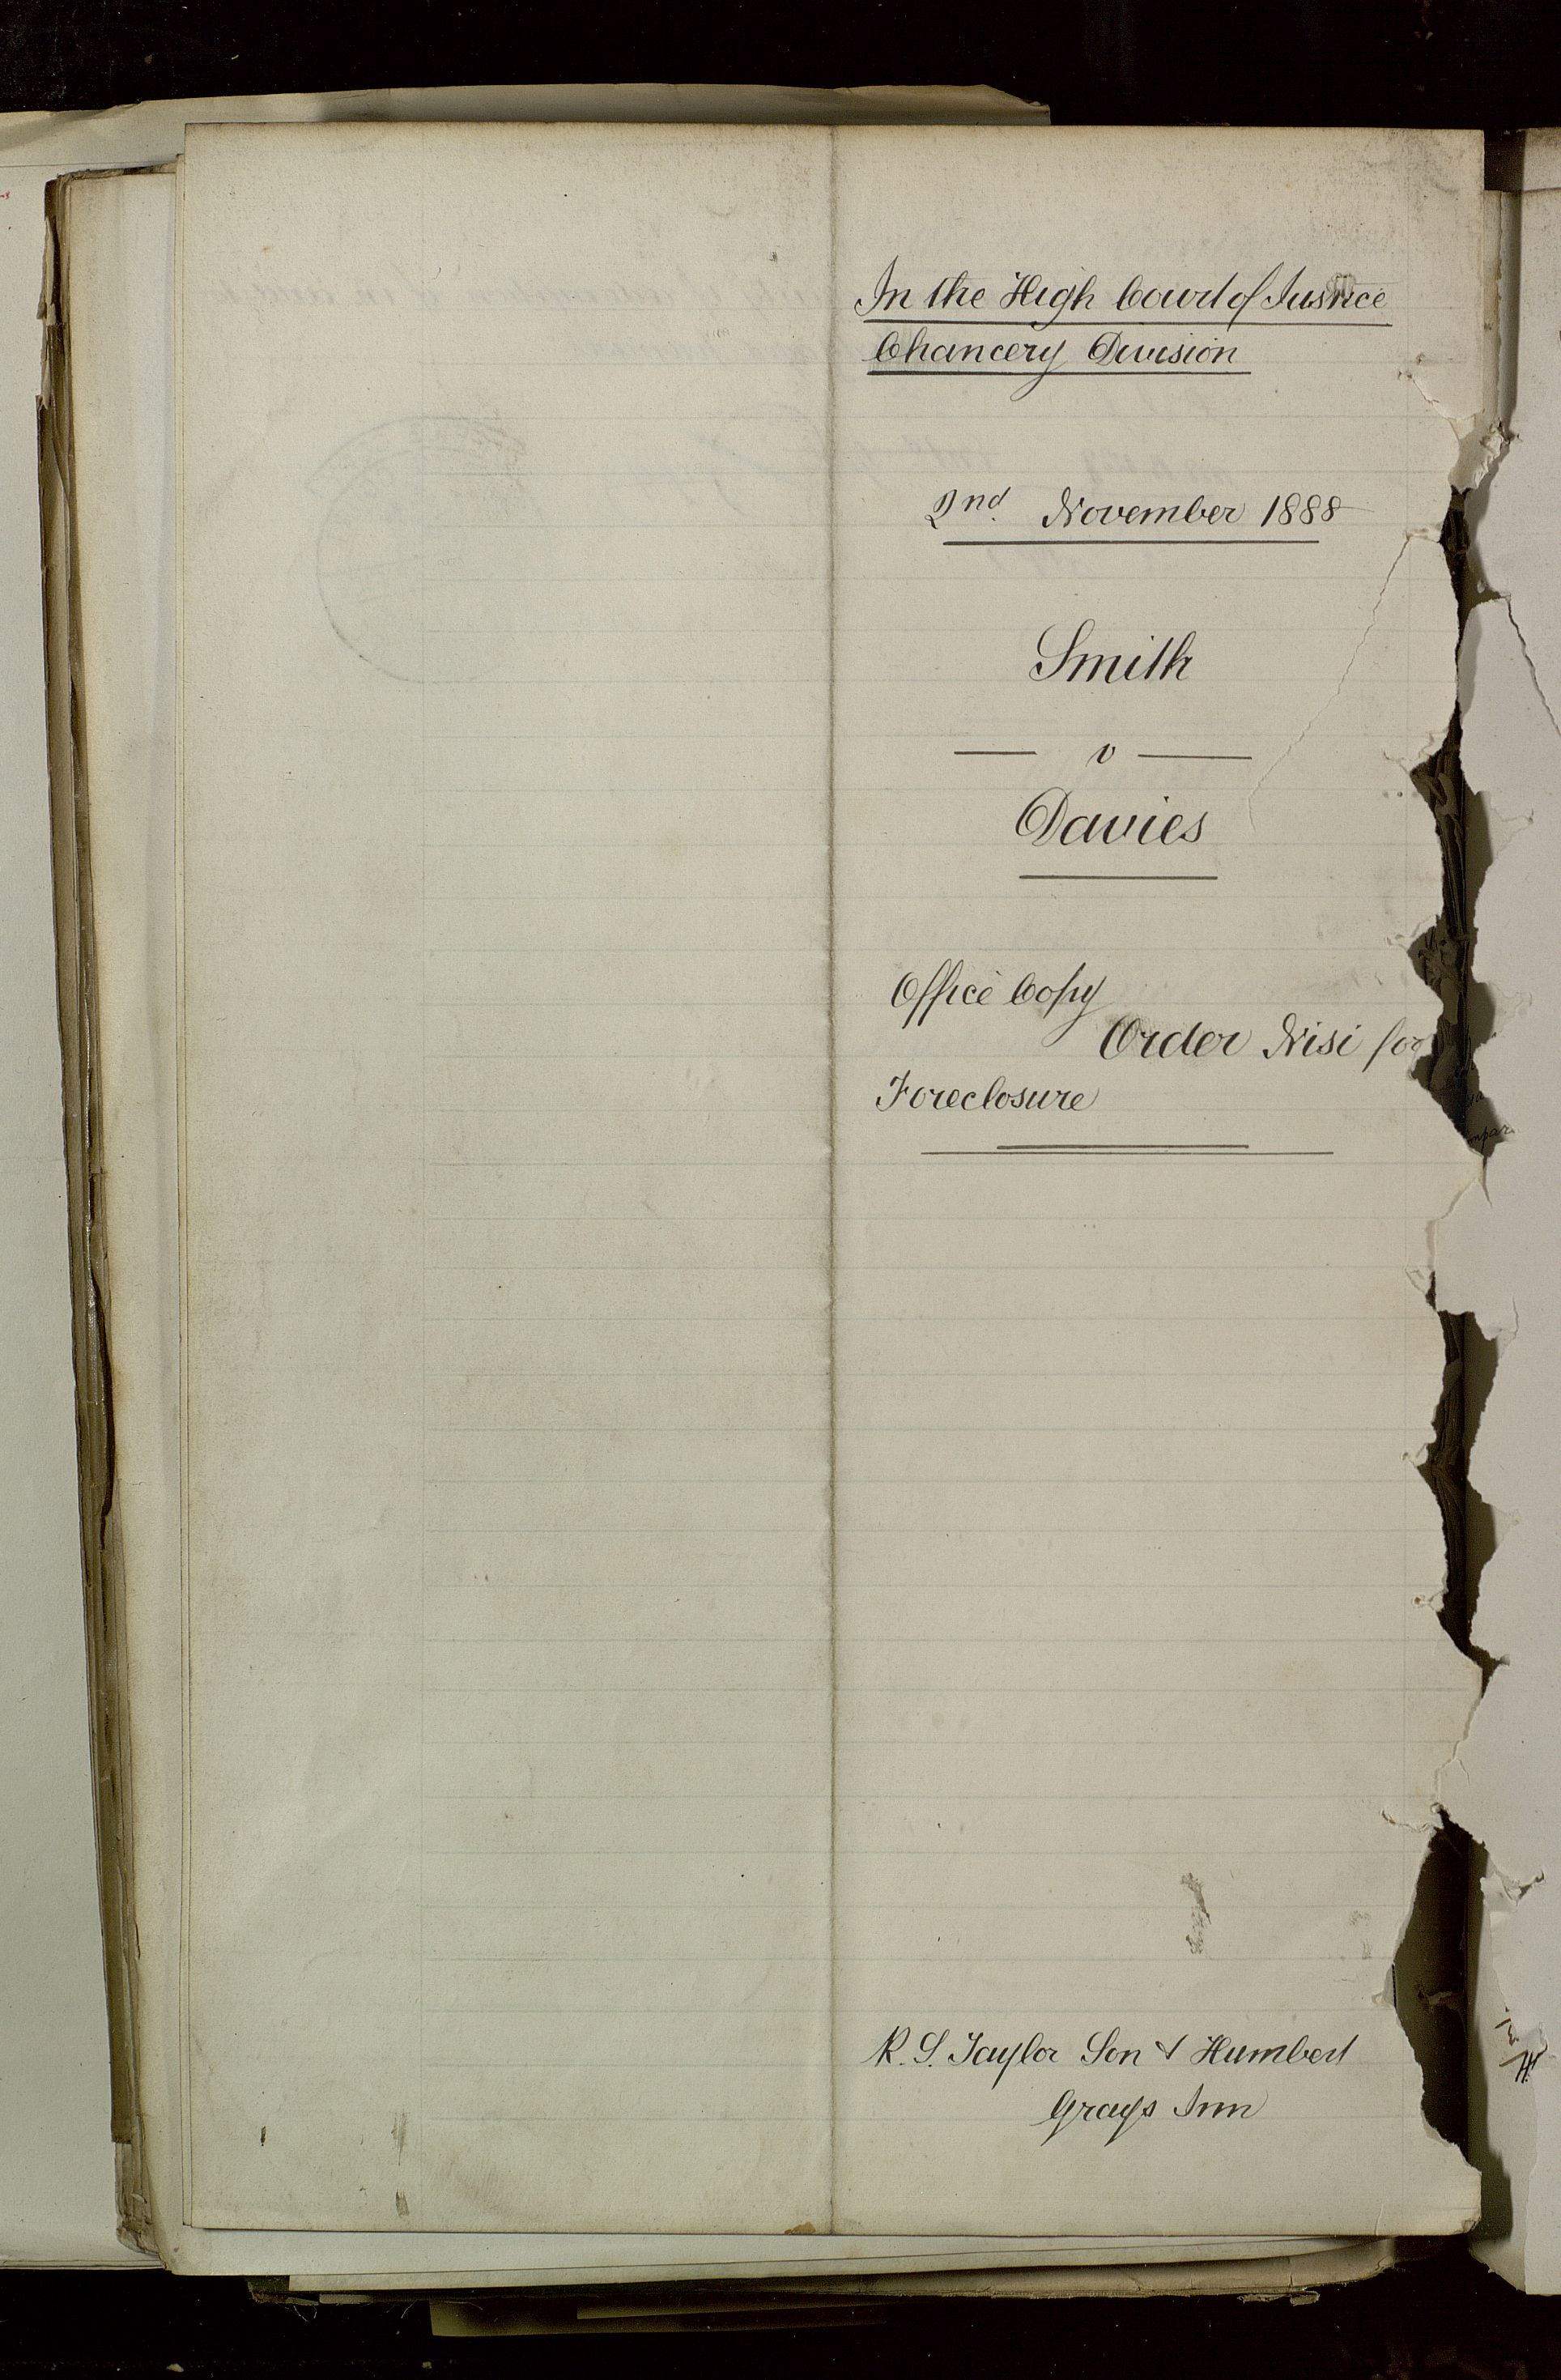 In the High Court of Justice
Chancery Division
2nd. November 1888
Smith
v
Davies
Office Copy
Order Nisi for
Foreclosure
R. S. Taylor Son & Humbert
Grays Inn